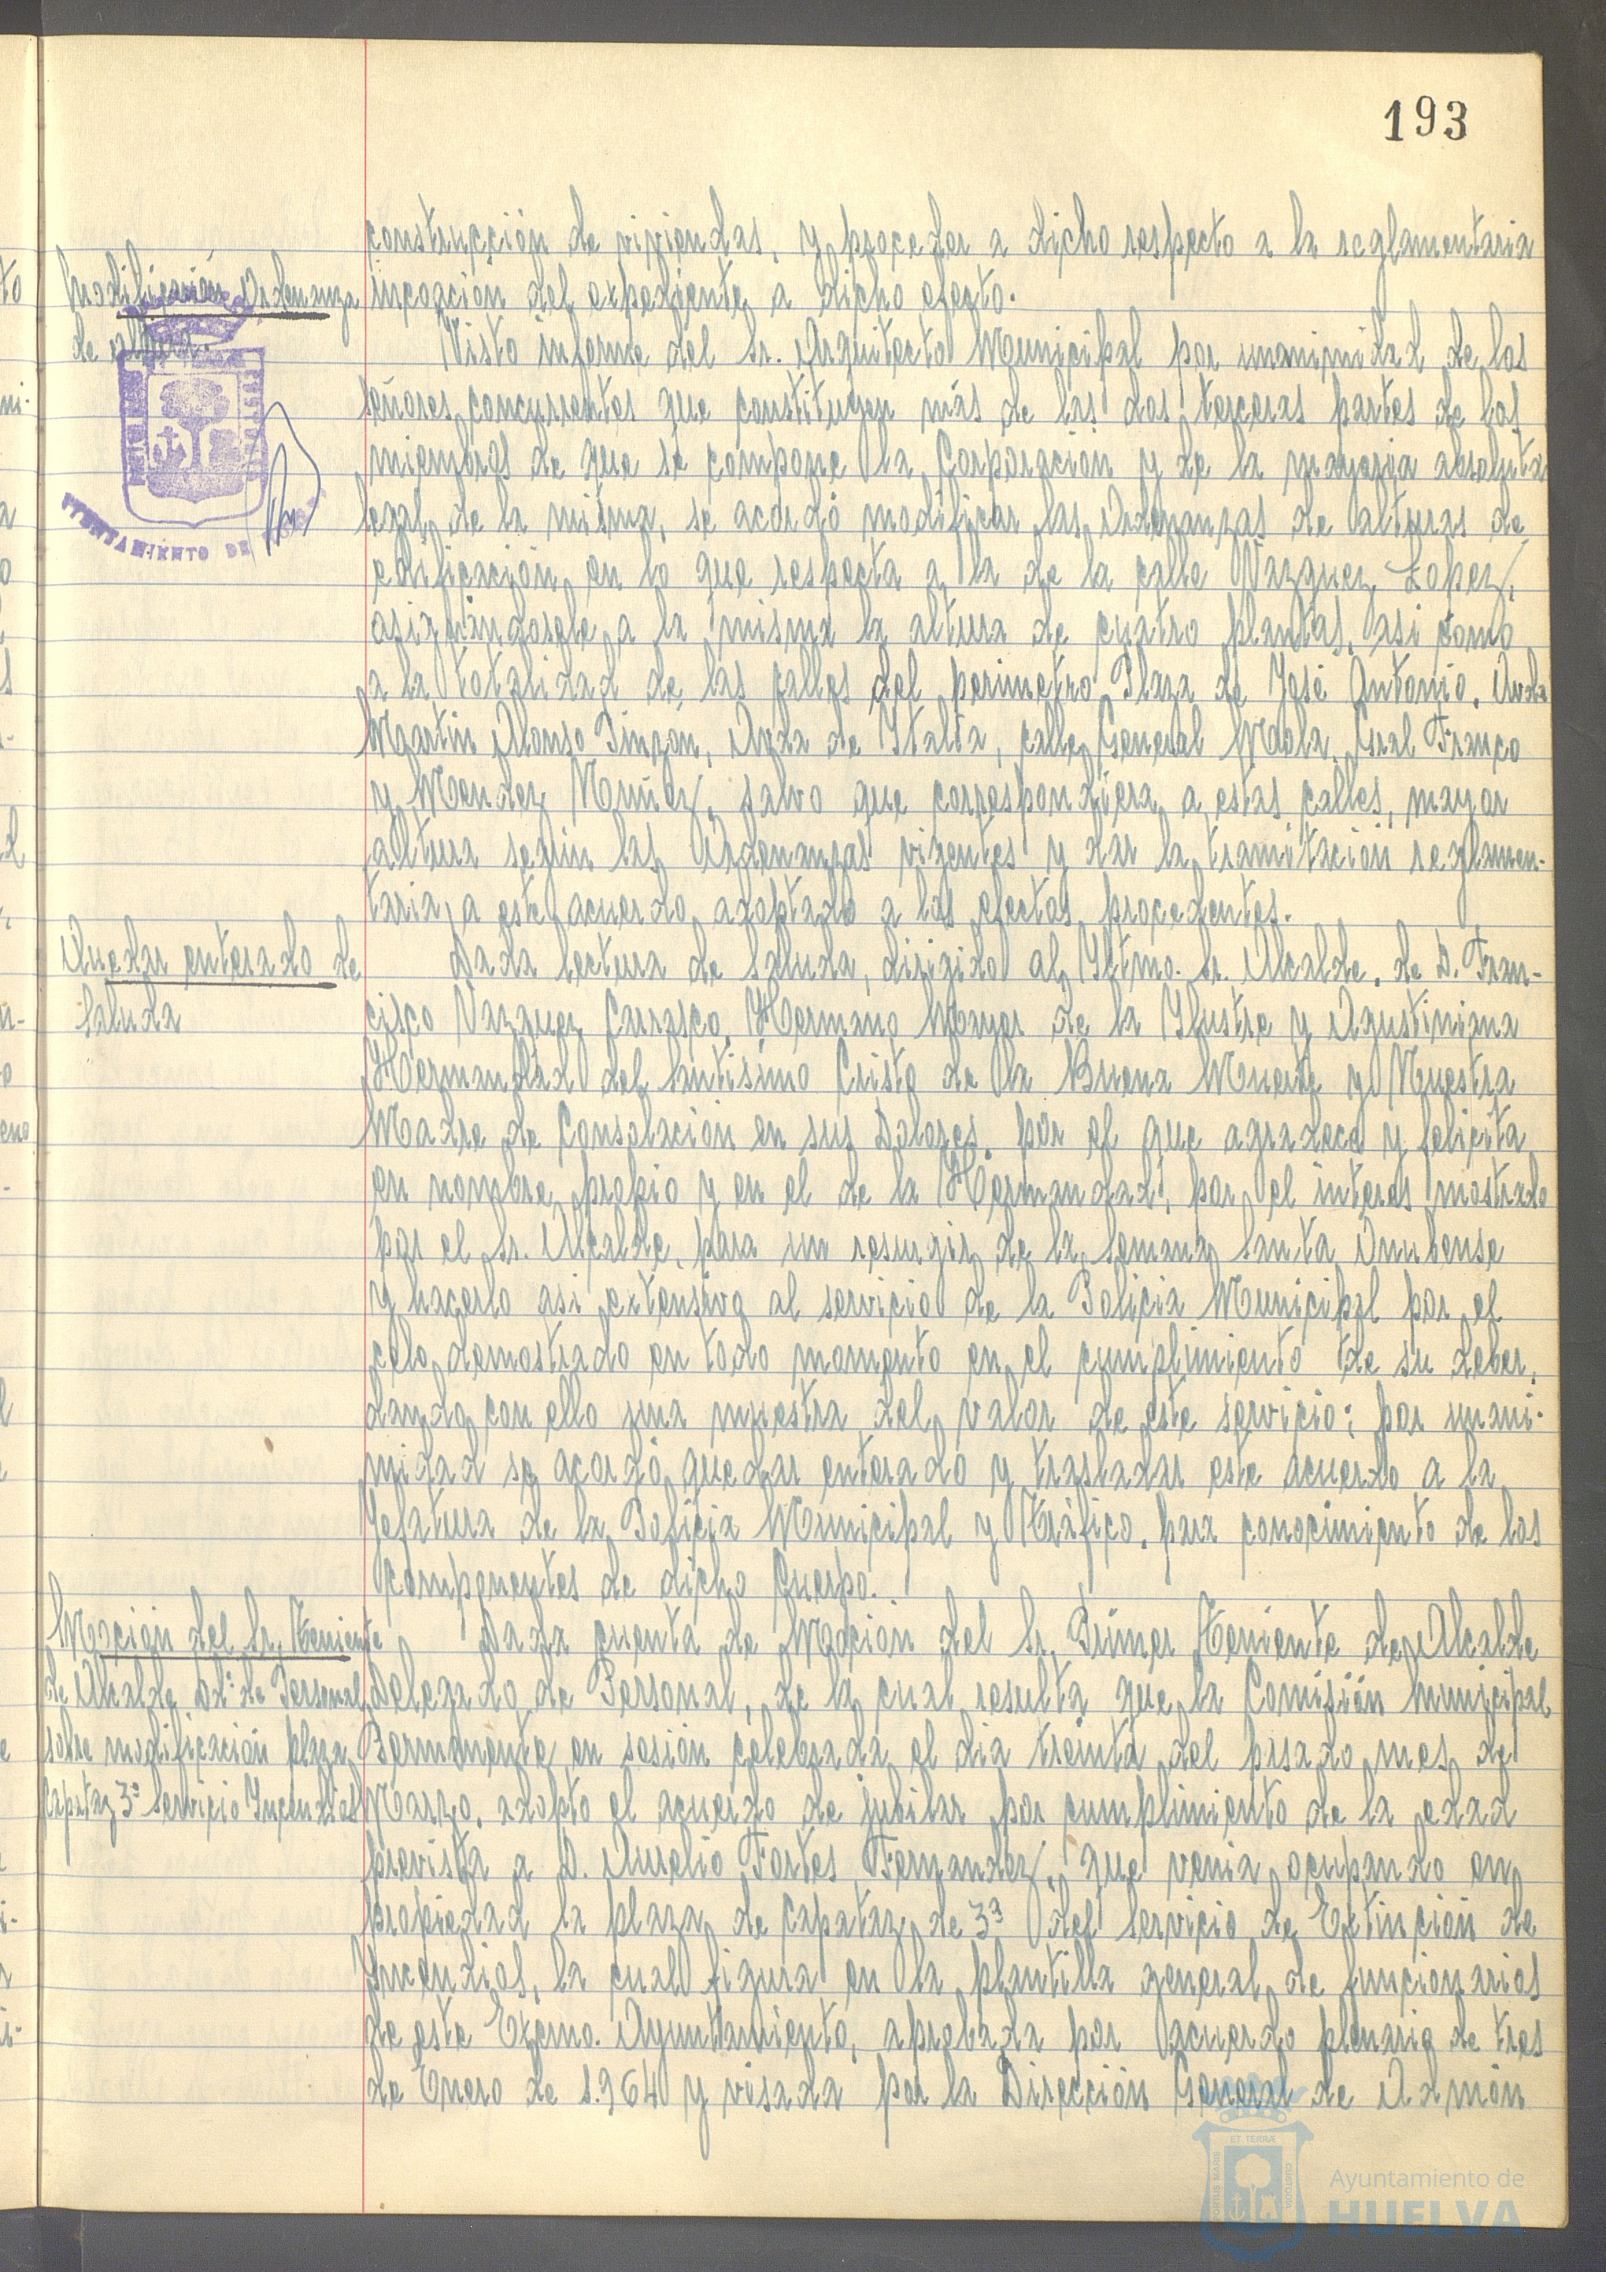 193
construcción de viviendas, y proceder a dicho respecto a la reglamentaria
incoación del expediente a dicho efecto.
Modificación Ordenanza
de altura.
Visto informe del Sr. Arquitecto Municipal por unanimidad de los
señores concurrentes que constituyen más de las dos terceras partes de los
miembros de que se compone la Corporación y de la mayoria absoluta
legal de la misma, se acordó modificar las Ordenanzas de alturas de
edificación en lo que respecta a la de la calle Vazquez Lopez,
asignandosele a la misma la altura de cuatro plantas, asi como
a la totalidad de las calles del perimetro Plaza de José Antonio, Avda
Martin Alonso Pinzón, Avda de Italia, calle General Mola, Gral Franco
y Mendez Nuñez, salvo que correspondiera a estas calles, mayor
altura según las Ordenanzas vigentes y dar la tramitación reglamen-
taria a este acuerdo adoptado a los efectos procedentes.
Quedar enterado de
Saluda
Dada lectura de Saluda, dirigido al Iltmo. Sr. Alcalde, de D. Fran-
cisco Vazquez Carrasco, Hermano Mayor de la Ilustre y Agustiniana
Hermandad del Santisimo Cristo de la Buena Muerte y Nuestra
Madre de Consolación en sus Dolores, por el que agradece y felicita
en nombre propio y en el de la Hermandad, por el interes mostrado
por el Sr. Alcalde, para un resurgir de la Semana Santa Onubense
y hacerlo asi extensivo al servicio de la Policia Municipal por el
celo demostrado en todo momento en el cumplimiento de su deber,
dando con ello una muestra del valor de este servicio; por unani-
midad se acordó quedar enterado y trasladar este acuerdo a la
Jefatura de la Policia Municipal y Tráfico, para conocimiento de los
componentes de dicho Cuerpo.
Moción del Sr. Teniente
de Alcalde Dd. de Personal
sobre modificación plaza
Capataz 3ª Servicio Incendios
Dada cuenta de Moción del Sr. Primer Teniente de Alcalde
Delegado de Personal, de la cual resulta que la Comisión Municipal
Permanente en sesión celebrada el dia treinta del pasado mes de
Marzo, adopto el acuerdo de jubilar por cumplimiento de la edad
prevista a D. Aurelio Fortes Fernandez, que venia ocupando en
propiedad la plaza de Capataz de 3ª del Servicio de Extinción de
Incendios, la cual figura en la plantilla general de funcionarios
de este Excmo. Ayuntamiento, aprobada por acuerdo plenario de tres
de Enero de 1.964 y visada por la Dirección General de Admón
AYUNTAMIENTO DE
ET TERRÆ
PORTUS MARIS
CUSTODIA
Ayuntamiento de
HUELVA